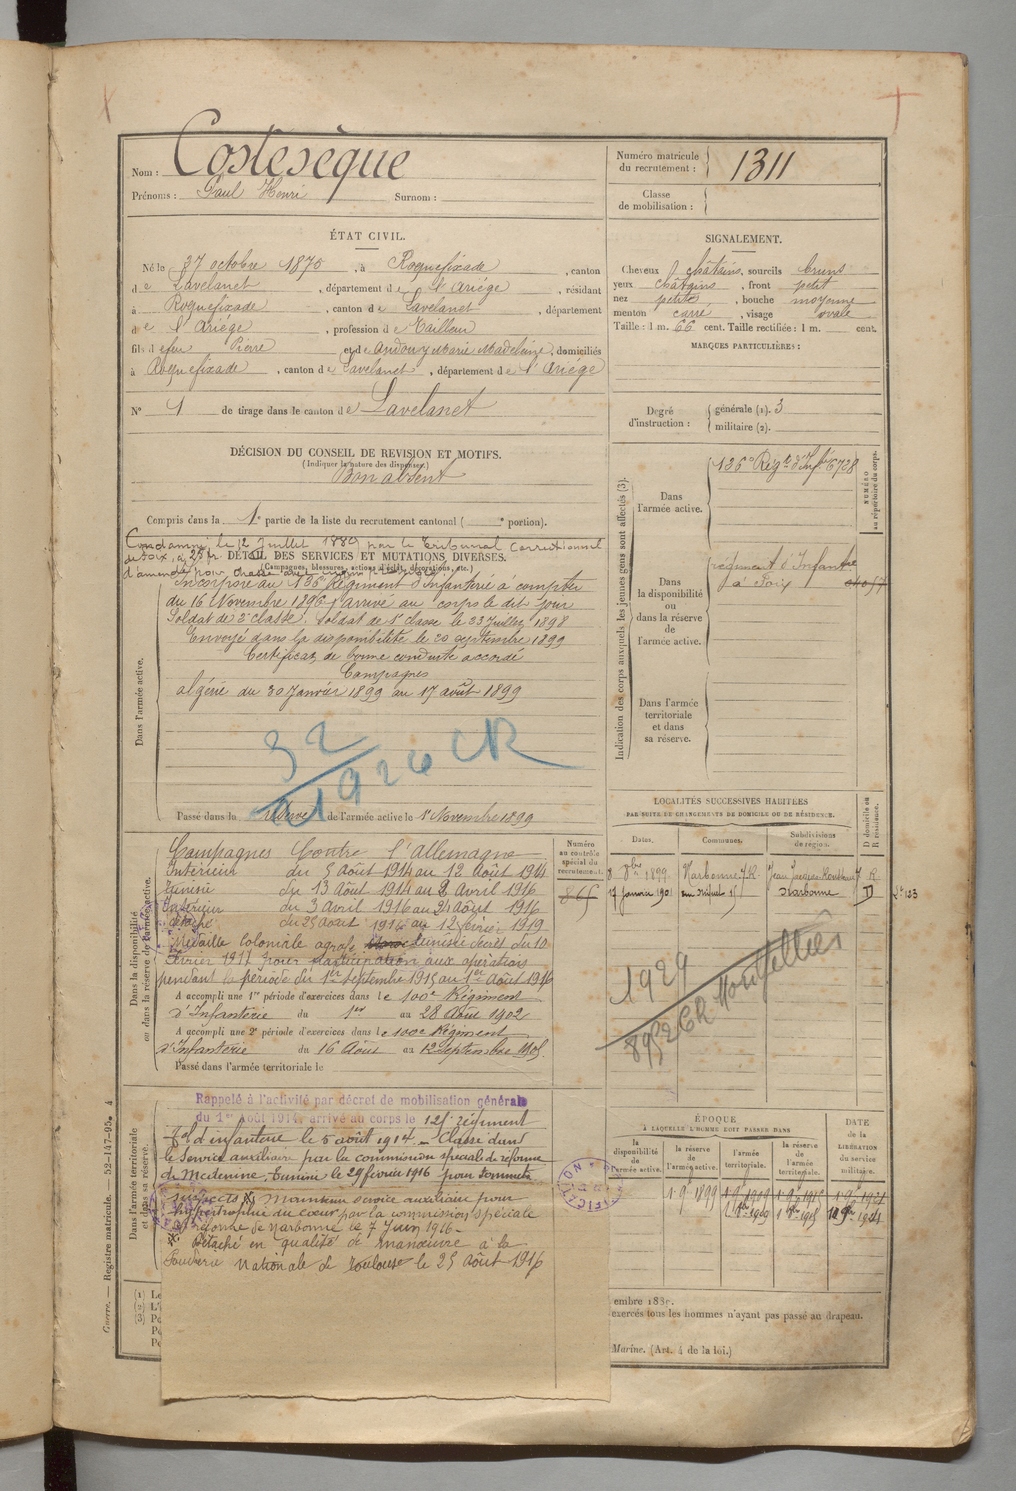 Nom : Costesèque
Prénoms : Paul Henri Surnom :
Numéro matricule du recrutement : 1311
Classe de mobilisation :
ÉTAT CIVIL.
Né le 27 octobre 1875, à Roquefixade, canton
de Lavelanet, département de l'Ariège, résidant
à Roquefixade, canton de Lavelanet, département
de l'Ariège, profession de Tailleur
fils de feu Pierre et de Andouy Marie Madeleine, domiciliés
à Roquefixade, canton de Lavelanet, département de l'Ariège
N° 1 de tirage dans le canton de Lavelanet
SIGNALEMENT.
Cheveux châtains, sourcils bruns
yeux châtains, front petit
nez petit, bouche moyenne
menton carré, visage ovale
Taille : 1 m. 66 cent. Taille rectifiée : 1 m. cent.
MARQUES PARTICULIÈRES :
Degré d'instruction : générale (1). 3
militaire (2).
DÉCISION DU CONSEIL DE REVISION ET MOTIFS.
(Indiquer la nature des dispenses.)
Bon absent
Compris dans la 1e partie de la liste du recrutement cantonal ( e portion).
Condamné le 12 Juillet 1889 par le Tribunal Correctionnel
de Foix, à 25 fr
d'amende pour chasse
DÉTAIL DES SERVICES ET MUTATIONS DIVERSES.
(Campagnes, blessures, actions d'éclat, décorations, etc.)
Dans l'armée active.
Incorporé au 136e Régiment d'Infanterie à compter
du 16 Novembre 1896, arrivé au corps le dit jour
Soldat de 2e classe. Soldat de 1e classe le 23 Juillet 1898
Envoyé dans la disponibilité le 20 septembre 1899
Certificat de bonne conduite accordé
Campagnes
Algérie du 30 Janvier 1899 au 17 août 1899
32
1926 CR
Passé dans la réserve de l'armée active le 1er Novembre 1899
Indication des corps auxquels les jeunes gens sont affectés (3).
Dans l'armée active.
136e Régt d'Infie 6728
NUMÉRO au répertoire du corps.
Dans la disponibilité ou dans la réserve de l'armée active.
régiment d'Infanterie
à Foix
Dans l'armée territoriale et dans sa réserve.
LOCALITÉS SUCCESSIVES HABITÉES
PAR SUITE DE CHANGEMENTS DE DOMICILE OU DE RÉSIDENCE.
Dates. Communes. Subdivisions de région. D domicile ou R résidence.
8 8bre 1899 Narbonne R
17 Janvier 1901 Narbonne D
1929
8952 CR Montpellier
Dans la disponibilité ou dans la réserve de l'armée active.
Numéro au contrôle spécial du recrutement.
865
Campagnes Contre l'Allemagne
Intérieur du 5 Août 1914 au 12 Août 1914
Tunisie du 13 Août 1914 au 2 Avril 1916
Intérieur du 3 Avril 1916 au 24 août 1916
détaché du 25 août 1916 au 12 février 1919
Médaille Coloniale agrafe Tunisie décret du 10
Février 1917 pour participation aux opérations
pendant la période du 1er Septembre 1915 au 1er Août 1916
A accompli une 1re période d'exercices dans le 100e Régiment
d'Infanterie du 1er au 28 Août 1902
A accompli une 2e période d'exercices dans le 100e Régiment
d'Infanterie du 16 Août au 12 Septembre 1905.
Passé dans l'armée territoriale le
Dans l'armée territoriale et dans sa réserve.
Rappelé à l'activité par décret de mobilisation générale
du 1er août 1914, arrivé au corps le 125e régiment
d'infanterie le 5 août 1914. Classé dans
le service auxiliaire par la commission spéciale de réforme
de Médenine, Tunisie le 29 février 1916 pour sommets
suspects. Maintenu service auxiliaire pour
hypertrophie du cœur par la commission spéciale
de réforme de Narbonne le 7 Juin 1916.
Détaché en qualité de manœuvre à la
Poudrerie Nationale de Toulouse le 25 Août 1916
ÉPOQUE
A LAQUELLE L'HOMME DOIT PASSER DANS
la disponibilité de l'armée active. la réserve de l'armée active. l'armée territoriale. la réserve de l'armée territoriale.
DATE de la LIBÉRATION du service militaire.
1 9bre 1899
embre 1889.
exercés tous les hommes n'ayant pas passé au drapeau.
Marine. (Art. 4 de la loi.)
Guerre. — Registre matricule. — 52-147-95. 4